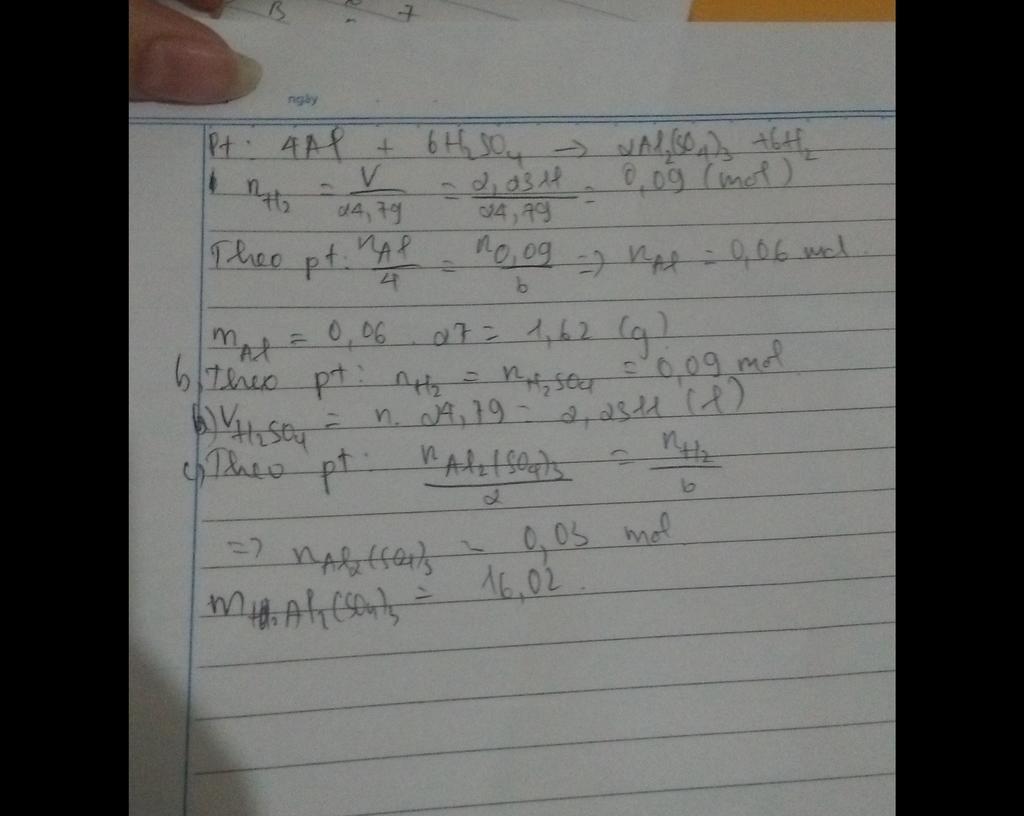 B ~ 7
ngày
Pt: 4Al + 6H₂SO₄ → 2Al₂(SO₄)₃ + 6H₂
n_H₂ = V/24,79 = 2,2311/24,79 = 0,09 (mol)
Theo pt: n_Al/4 = n0,09/6 => n_Al = 0,06 mol
m_Al = 0,06 . 27 = 1,62 (g)
b) Theo pt: n_H₂ = n_H₂SO₄ = 0,09 mol
b) V_H₂SO₄ = n. 24,79 = 2,2311 (l)
c) Theo pt: n_Al₂(SO₄)₃/2 = n_H₂/6
=> n_Al₂(SO₄)₃ = 0,03 mol
m_Al₂(SO₄)₃ = 16,02.